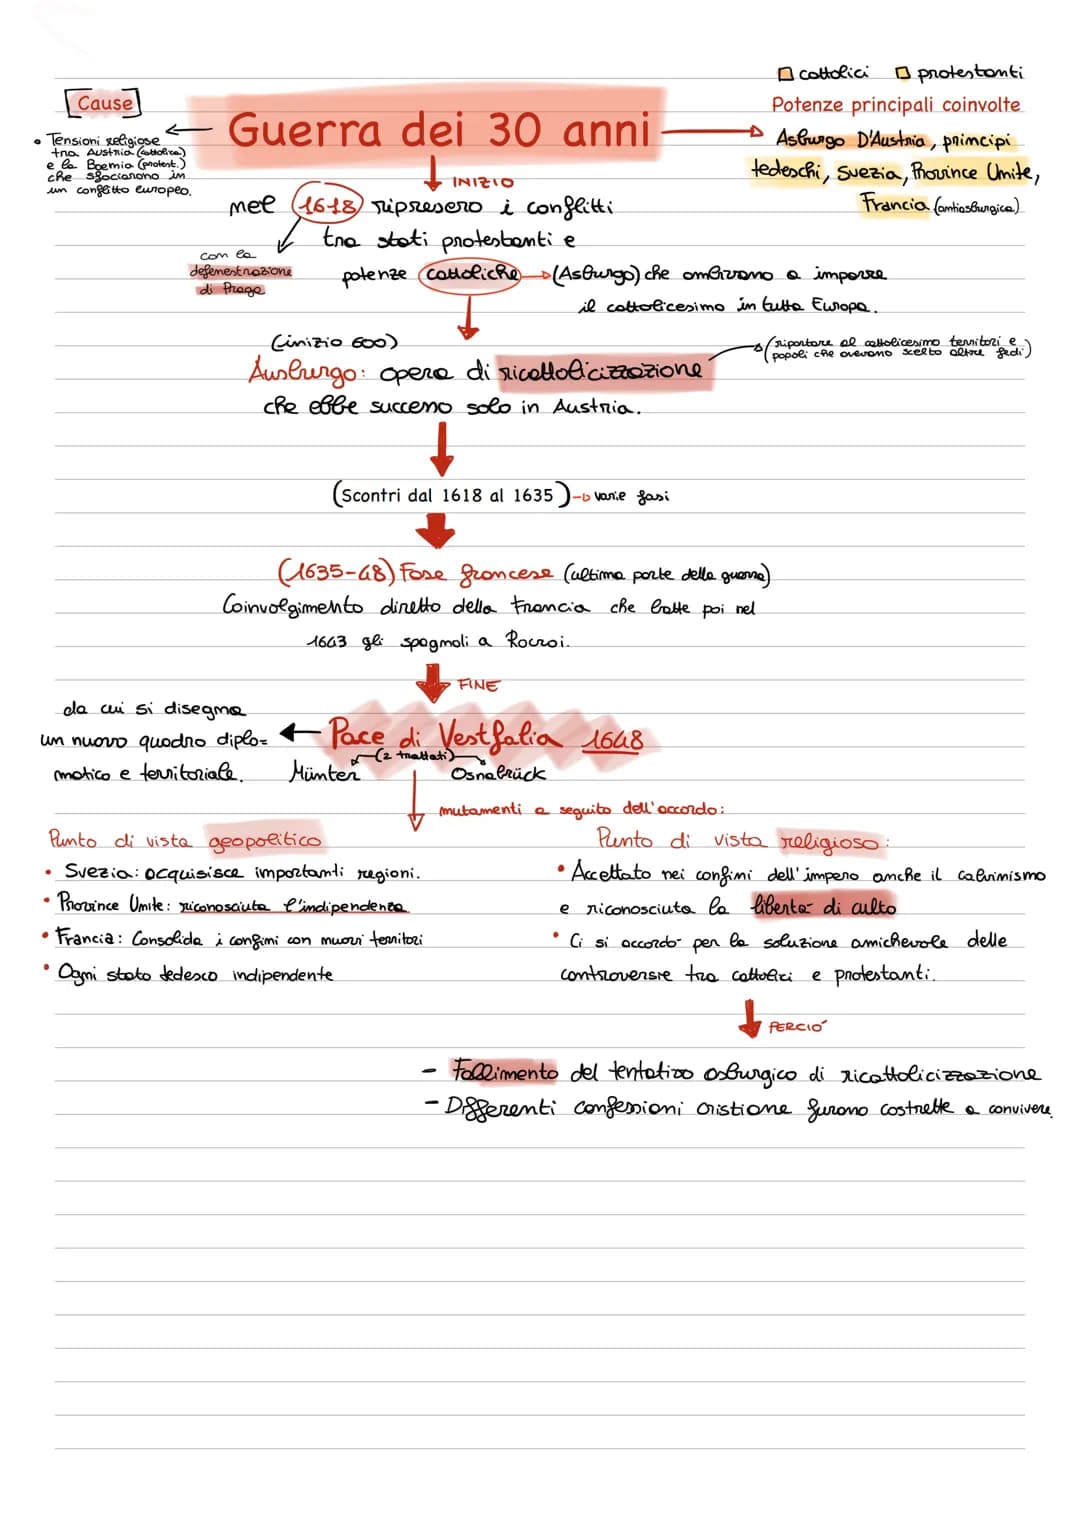 cattolici protestanti
[Cause]
Potenze principali coinvolte
Guerra dei 30 anni
• Tensioni religiose
tra Austria (cattolica)
e la Boemia (protest.)
che sfociarono in
un conflitto europeo.
Asburgo D'Austria, principi
tedeschi, Svezia, Province Unite,
Francia (antiasburgica)
INIZIO
nel 1618 ripresero i conflitti
tra stati protestanti e
con la
defenestrazione
di Praga
potenze cattoliche (Asburgo) che ambivano a imporre
il cattolicesimo in tutta Europa.
(inizio 600)
(riportare al cattolicesimo territori e
popoli che avevano scelto altre fedi)
Ausburgo: opera di ricattolicizzazione
che ebbe successo solo in Austria.
(Scontri dal 1618 al 1635) varie fasi
(1635-48) Fase francese (ultima parte della guerra)
Coinvolgimento diretto della Francia che batte poi nel
1643 gli spagnoli a Rocroi.
FINE
da cui si disegna
un nuovo quadro diplo=
matico e territoriale.
Pace di Vestfalia 1648
(2 trattati)
Münter Osnabrück
mutamenti a seguito dell'accordo:
Punto di vista geopolitico
• Svezia: acquisisce importanti regioni.
• Province Unite: riconosciuta l'indipendenza
• Francia: Consolida i confini con nuovi territori
• Ogni stato tedesco indipendente
Punto di vista religioso:
• Accettato nei confini dell'impero anche il calvinismo
e riconosciuta la libertà di culto
• Ci si accordò per la soluzione amichevole delle
controversie tra cattolici e protestanti.
PERCIÓ
- Fallimento del tentativo asburgico di ricattolicizzazione
- Differenti confessioni cristiane furono costrette a convivere.